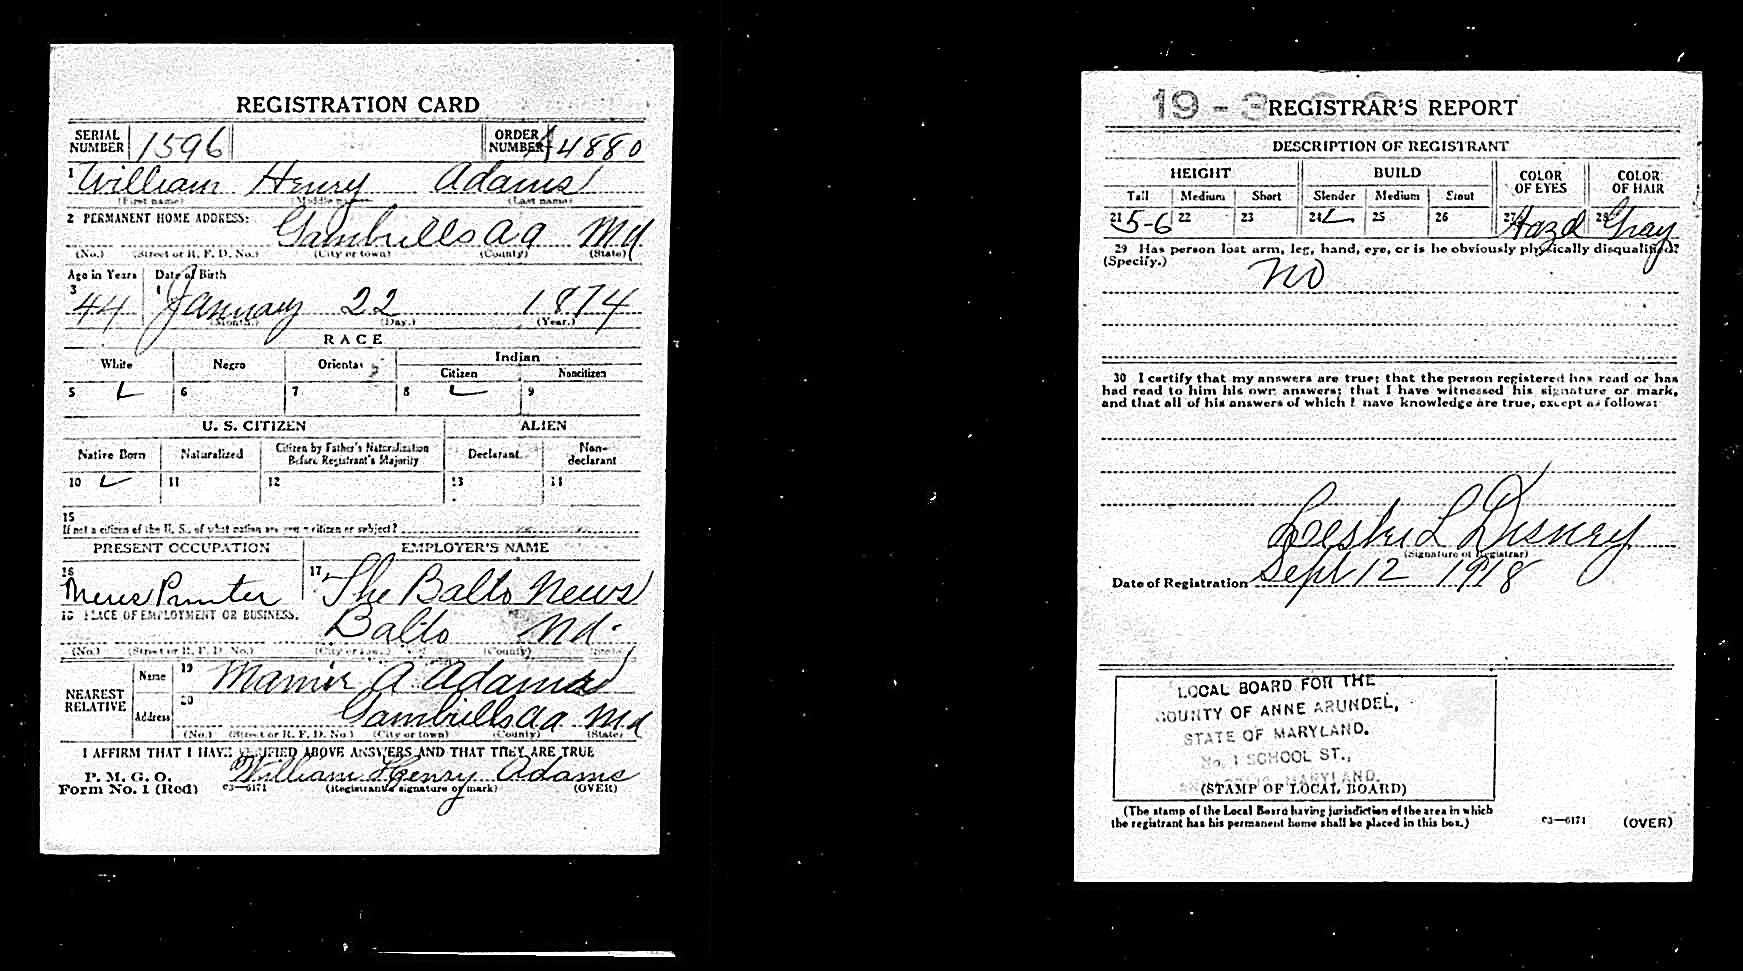 REGISTRATION CARD
SERIAL NUMBER 1596 ORDER NUMBER A4880
1 William Henry Adams
(First name) (Middle name) (Last name)
2 PERMANENT HOME ADDRESS:
Gambrills AA Md
(No.) (Street or R. F. D. No.) (City or town) (County) (State)
Age in Years Date of Birth
3 44 4 January 22 1874
(Month.) (Day.) (Year.)
RACE
White Negro Oriental Indian
Citizen Noncitizen
5 6 7 8 9
U. S. CITIZEN ALIEN
Native Born Naturalized Citizen by Father's Naturalization Before Registrant's Majority Declarant Non-declarant
10 11 12 13 14
15
If not a citizen of the U. S., of what nation are you a citizen or subject?
PRESENT OCCUPATION EMPLOYER'S NAME
16 News Printer 17 The Balto News
18 PLACE OF EMPLOYMENT OR BUSINESS.
Balto Md.
(No.) (Street or R. F. D. No.) (City or town) (County) (State)
NEAREST RELATIVE
Name 19 Mamie A Adams
Address 20 Gambrills AA Md
(No.) (Street or R. F. D. No.) (City or town) (County) (State)
I AFFIRM THAT I HAVE VERIFIED ABOVE ANSWERS AND THAT THEY ARE TRUE
P. M. G. O.
Form No. 1 (Red) 03—6171 William Henry Adams
(Registrant's signature or mark) (OVER)
19 - 3
REGISTRAR'S REPORT
DESCRIPTION OF REGISTRANT
HEIGHT BUILD COLOR OF EYES COLOR OF HAIR
Tall Medium Short Slender Medium Stout
21 5-6 22 23 24 25 26 27 Hazel 28 Gray
29 Has person lost arm, leg, hand, eye, or is he obviously physically disqualified?
(Specify.) No
30 I certify that my answers are true; that the person registered has read or has
had read to him his own answers; that I have witnessed his signature or mark,
and that all of his answers of which I have knowledge are true, except as follows:
Leslie L Disney
(Signature of Registrar)
Date of Registration Sept 12 1918
LOCAL BOARD FOR THE
COUNTY OF ANNE ARUNDEL,
STATE OF MARYLAND.
No. 1 SCHOOL ST.,
ANNAPOLIS, MARYLAND.
(STAMP OF LOCAL BOARD)
(The stamp of the Local Board having jurisdiction of the area in which
the registrant has his permanent home shall be placed in this box.)
03—6171 (OVER)